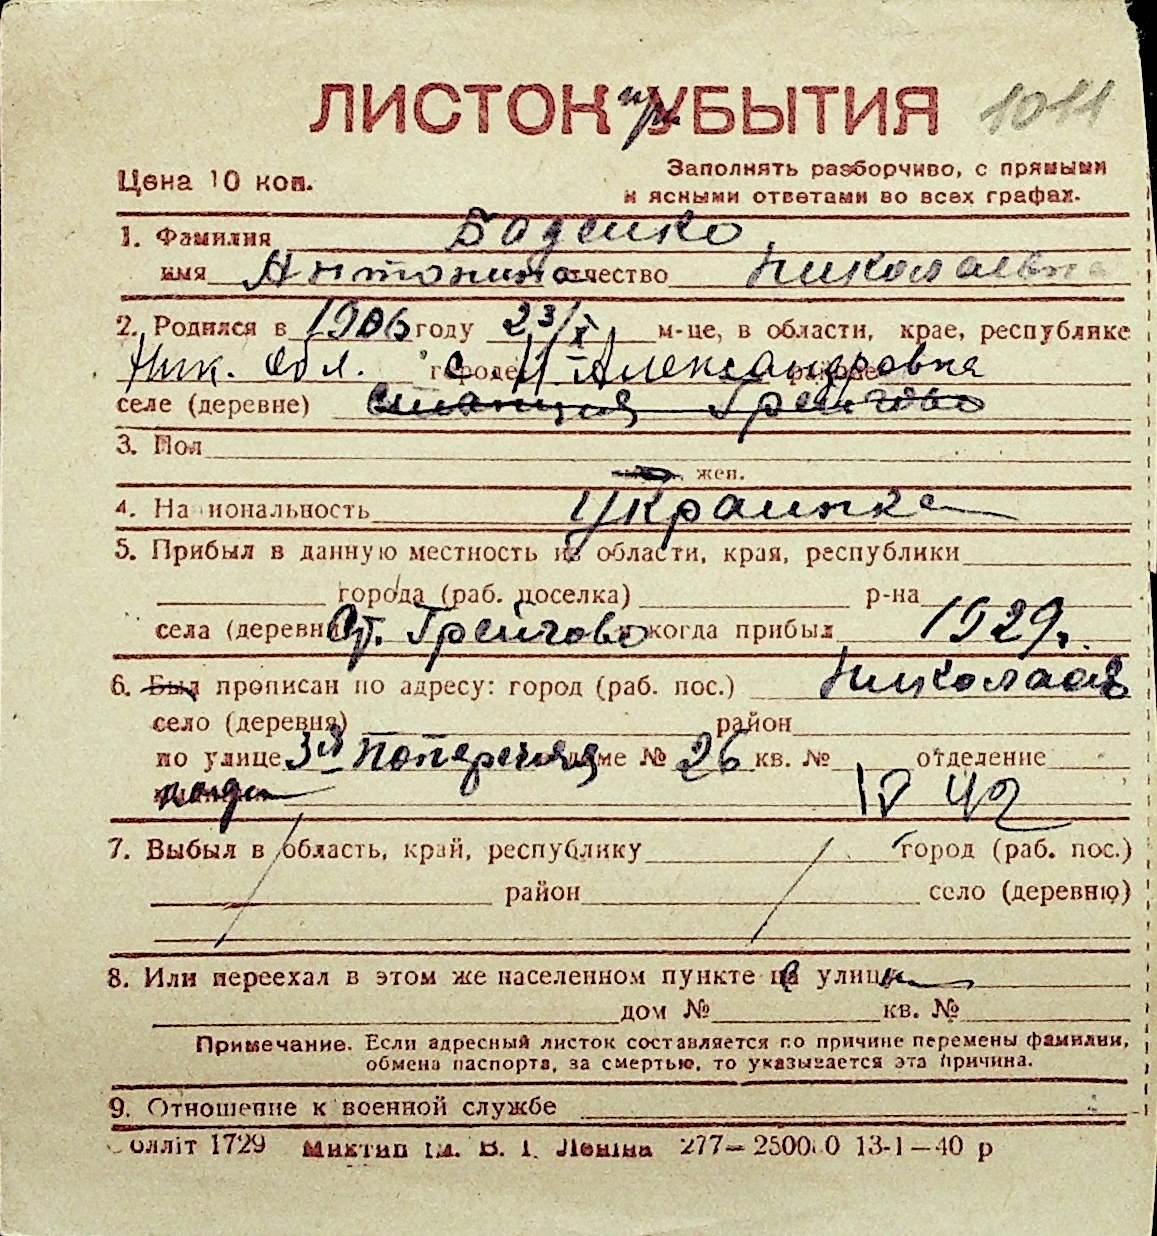 ЛИСТОК при УБЫТИЯ 1011
Цена 10 коп.
Заполнять разборчиво, с прямыми
и ясными ответами во всех графах.
1. Фамилия Баденко
имя Антонина отчество Николаевна
2. Родился в 1906 году 23/X м-це, в области, крае, республике
Ник. обл. городе Н. Александровка районе
селе (деревне) станция Грейгово
3. Пол
жен.
4. Национальность Украинка
5. Прибыл в данную местность из области, края, республики
города (раб. поселка) р-на
села (деревни) Ст. Грейгово когда прибыл 1929.
6. Был прописан по адресу: город (раб. пос.) Николаев
село (деревня) район
по улице 3я Поперечная доме № 26 кв. № отделение
7. Выбыл в область, край, республику город (раб. пос.)
район село (деревню)
8. Или переехал в этом же населенном пункте на улицу
дом № кв. №
Примечание. Если адресный листок составляется по причине перемены фамилии,
обмена паспорта, за смертью, то указывается эта причина.
9. Отношение к военной службе
олліт 1729 Миктип ім. В. І. Леніна 277—250000 13-1—40 р